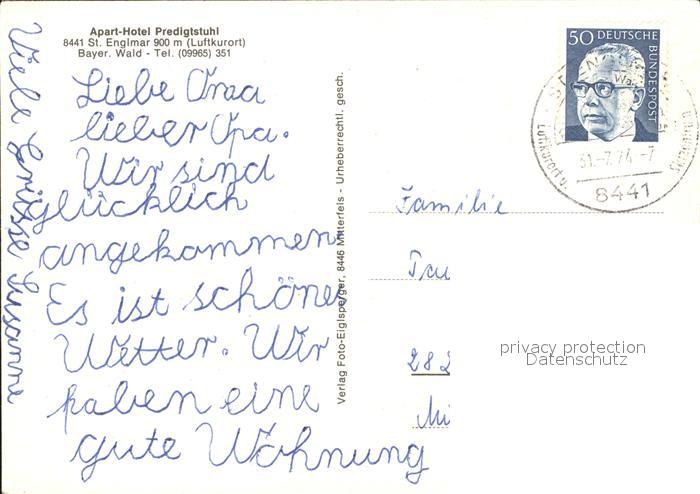 Apart-Hotel Predigtstuhl
8441 St. Englmar 900 m (Luftkurort)
Bayer. Wald - Tel. (09965) 351
Liebe Oma
lieber Opa.
Wir sind
glücklich
angekommen.
Es ist schönes
Wetter. Wir
haben eine
gute Wohnung
Viele Grüsse Susanne
Verlag Foto-Eiglsperger, 8446 Mitterfels - Urheberrechtl. gesch.
50 DEUTSCHE
BUNDESPOST
Luftkurort u.
8441
Familie
privacy protection
Datenschutz